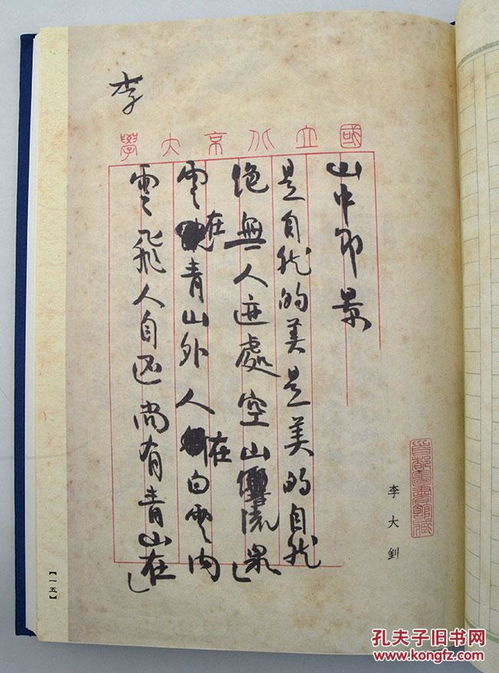 國立北京大學
山中即景
是自然的美是美的自然
絕無人迹處空山響流泉
雲在青山外人在白雲内
雲飛人自还尚有青山在
李
李大釗
首都圖書館藏
【一五】
孔夫子旧书网
www.kongfz.com